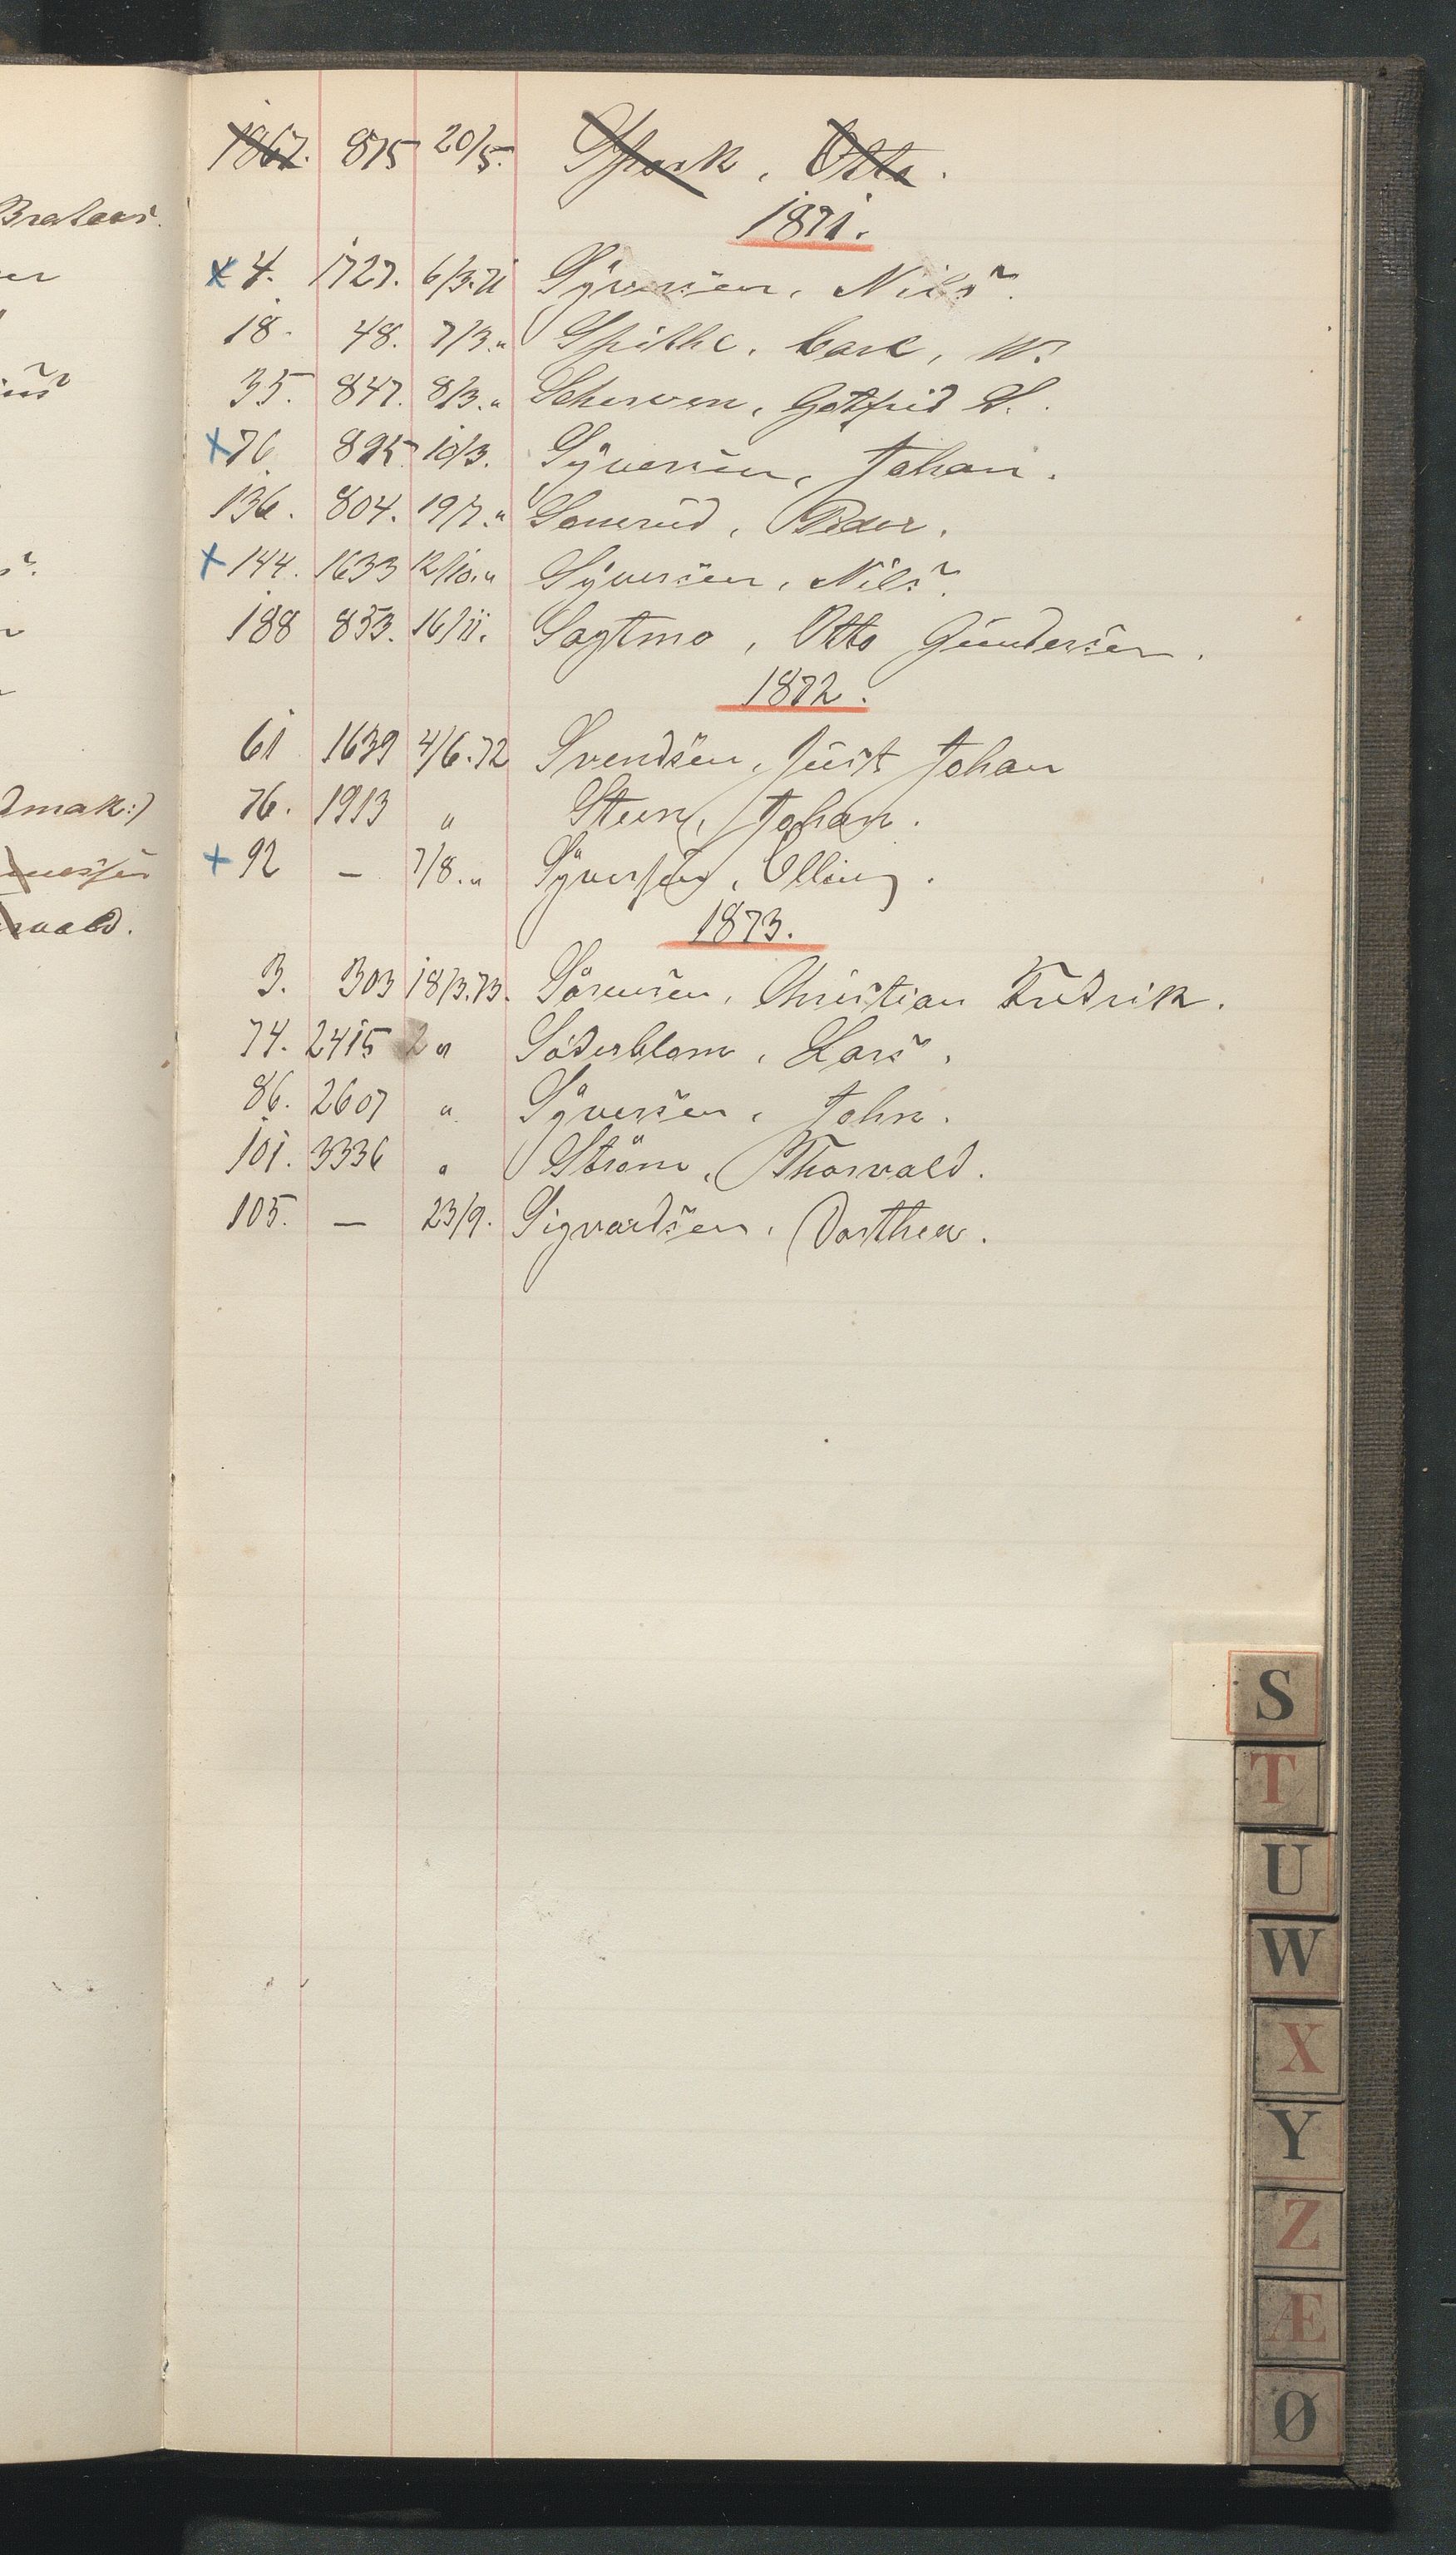 1867. 875 20/5. Spørk, Otto.
1871.
x 4. 1727. 6/3.71 Syversen, Nils.
18. 48. 7/3. " Spithe, Carl, W.
35. 847. 8/3. " Scherven, Gotfrid S.
x 76. 895 10/3. Syversen, Johan.
136. 804. 19/7. " Sonerud, Peder.
x 144. 1633 12/10. " Syversen, Nils.
188 853. 16/11. Sagtmo, Otto Gundersen.
1872.
61 1639 4/6.72 Svendsen, Just Johan
76. 1913 " Steen, Johan.
+ 92 — 7/8. " Syversen, Elling.
1873.
3. 303 18/3.73. Sørensen, Christian Fredrik.
74. 2415 " Söderblom, Lars.
86. 2607 " Syversen, John.
101. 3336 " Strøm, Thorvald.
105. — 23/9. Sigvardsen, Dorthea.
S
T
U
W
X
Y
Z
Æ
Ø